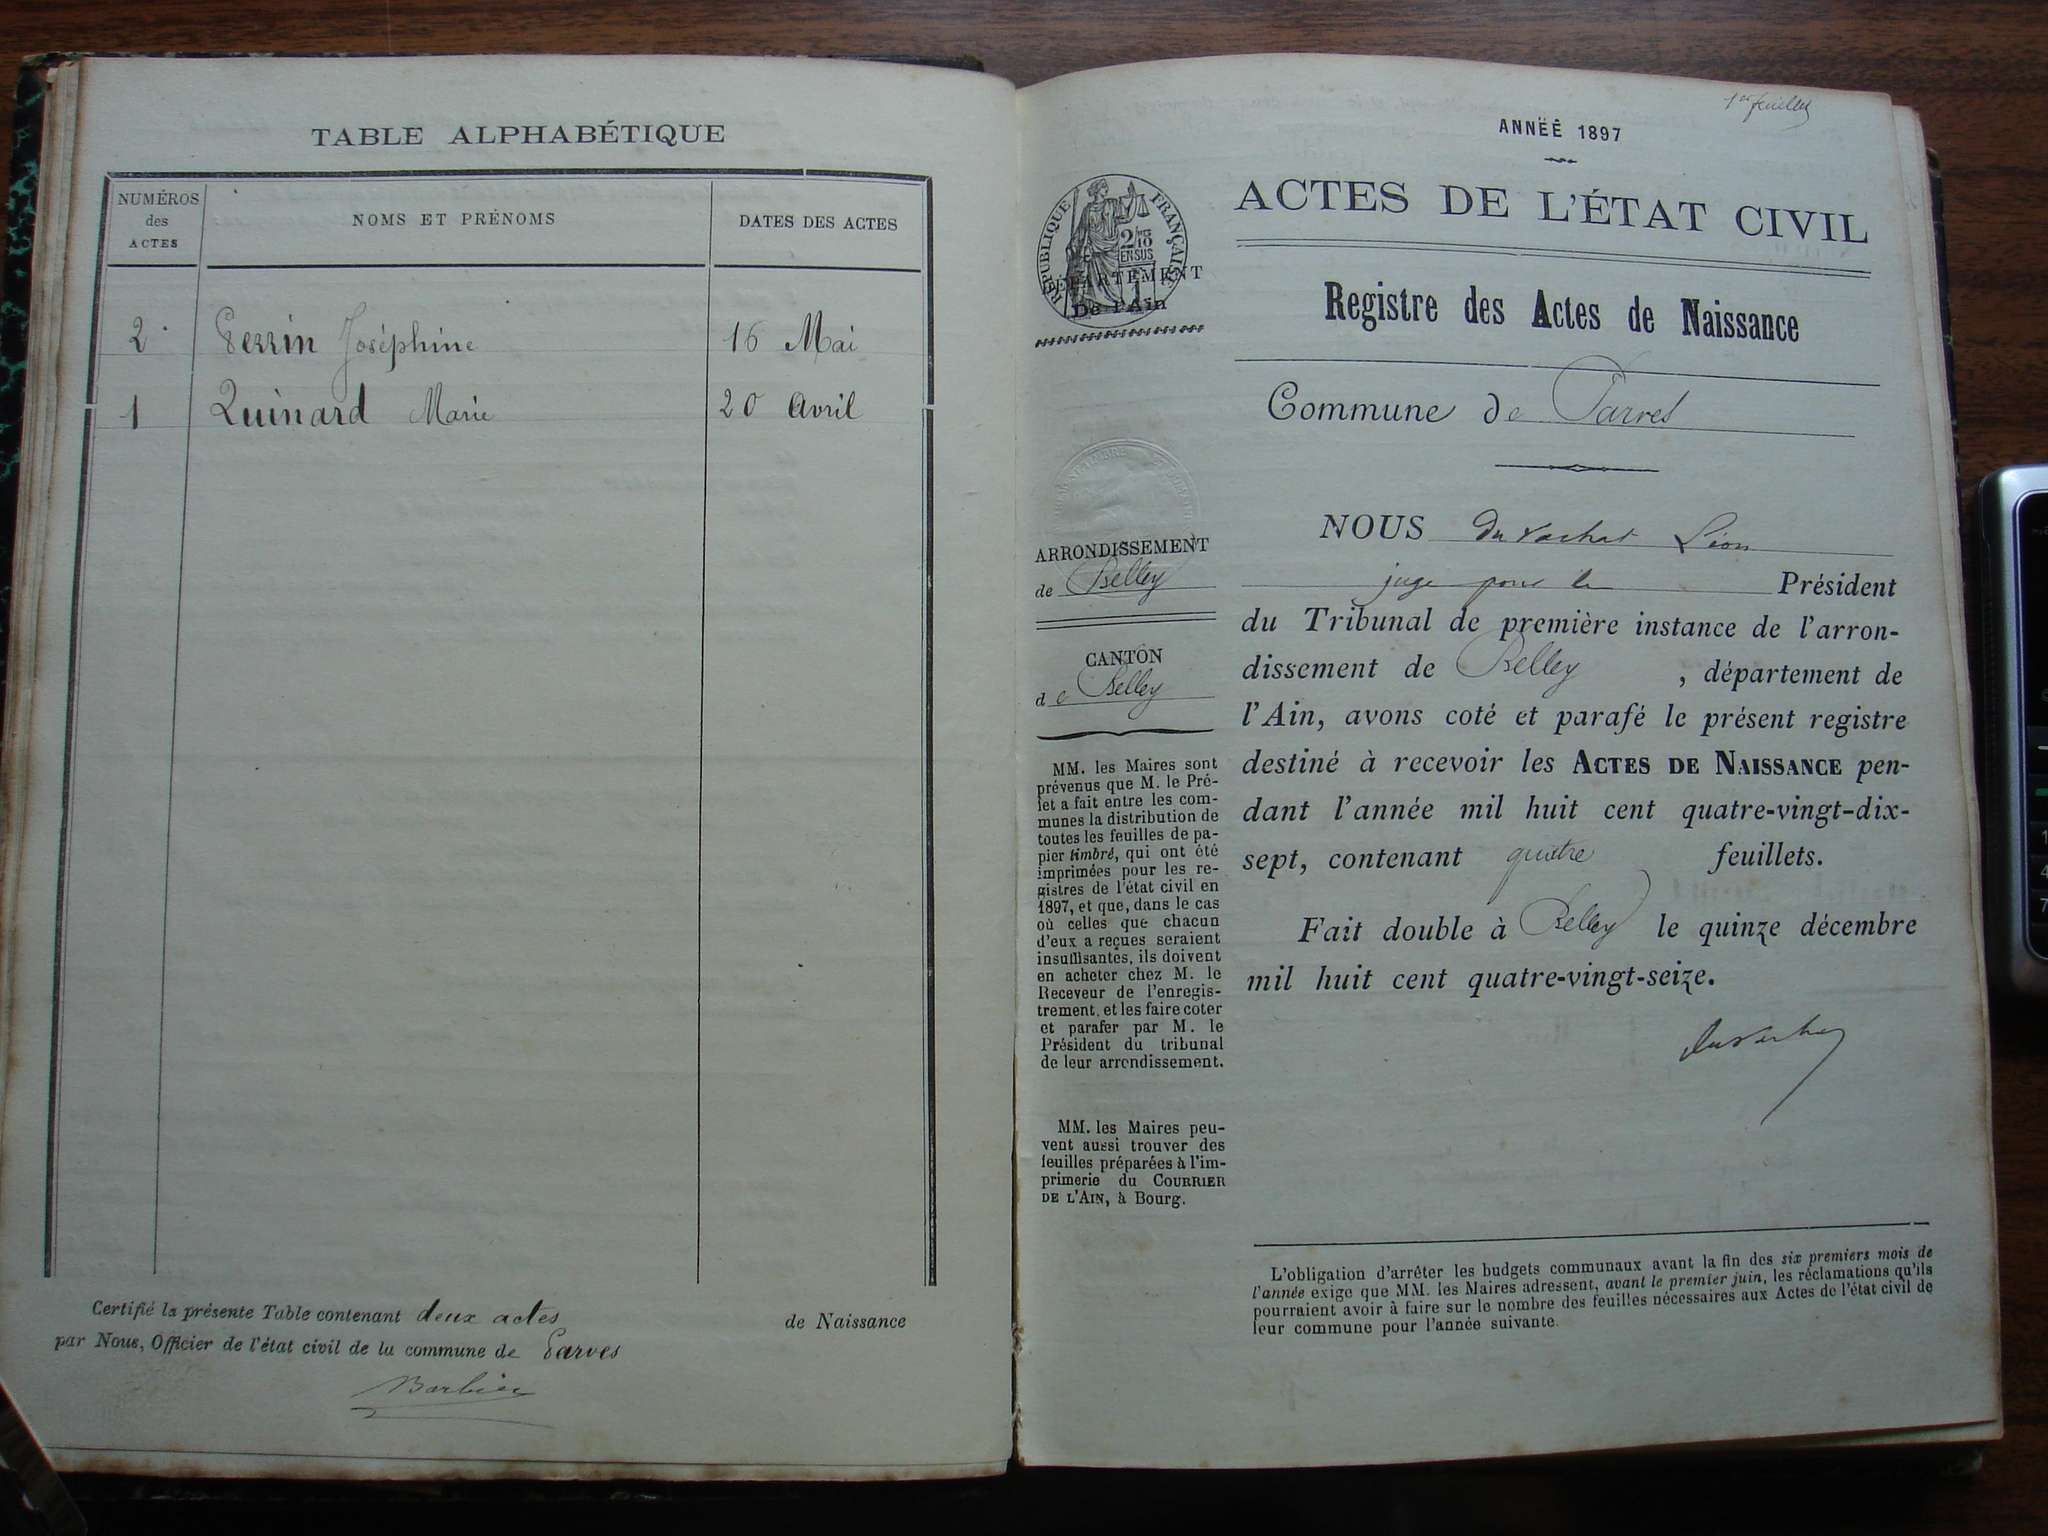 TABLE ALPHABÉTIQUE
NUMÉROS
des
ACTES
NOMS ET PRÉNOMS
DATES DES ACTES
2 Perrin Joséphine 16 Mai
1 Quinard Marie 20 Avril
Certifié la présente Table contenant deux actes de Naissance
par Nous, Officier de l'état civil de la commune de Parves
Barbier
1er feuillet
ANNÉE 1897
RÉPUBLIQUE FRANÇAISE
2/10
EN SUS
DÉPARTEMENT
De l'Ain
ACTES DE L'ÉTAT CIVIL
Registre des Actes de Naissance
Commune de Parves
ARRONDISSEMENT
de Belley
CANTON
de Belley
MM. les Maires sont
prévenus que M. le Pré-
fet a fait entre les com-
munes la distribution de
toutes les feuilles de pa-
pier timbré, qui ont été
imprimées pour les re-
gistres de l'état civil en
1897, et que, dans le cas
où celles que chacun
d'eux a reçues seraient
insuffisantes, ils doivent
en acheter chez M. le
Receveur de l'enregis-
trement, et les faire coter
et parafer par M. le
Président du tribunal
de leur arrondissement.
MM. les Maires peu-
vent aussi trouver des
feuilles préparées à l'im-
primerie du COURRIER
DE L'AIN, à Bourg.
NOUS Du Vachat Léon
juge pour le Président
du Tribunal de première instance de l'arron-
dissement de Belley , département de
l'Ain, avons coté et parafé le présent registre
destiné à recevoir les ACTES DE NAISSANCE pen-
dant l'année mil huit cent quatre-vingt-dix-
sept, contenant quatre feuillets.
Fait double à Belley le quinze décembre
mil huit cent quatre-vingt-seize.
L'obligation d'arrêter les budgets communaux avant la fin des six premiers mois de
l'année exige que MM. les Maires adressent, avant le premier juin, les réclamations qu'ils
pourraient avoir à faire sur le nombre des feuilles nécessaires aux Actes de l'état civil de
leur commune pour l'année suivante.